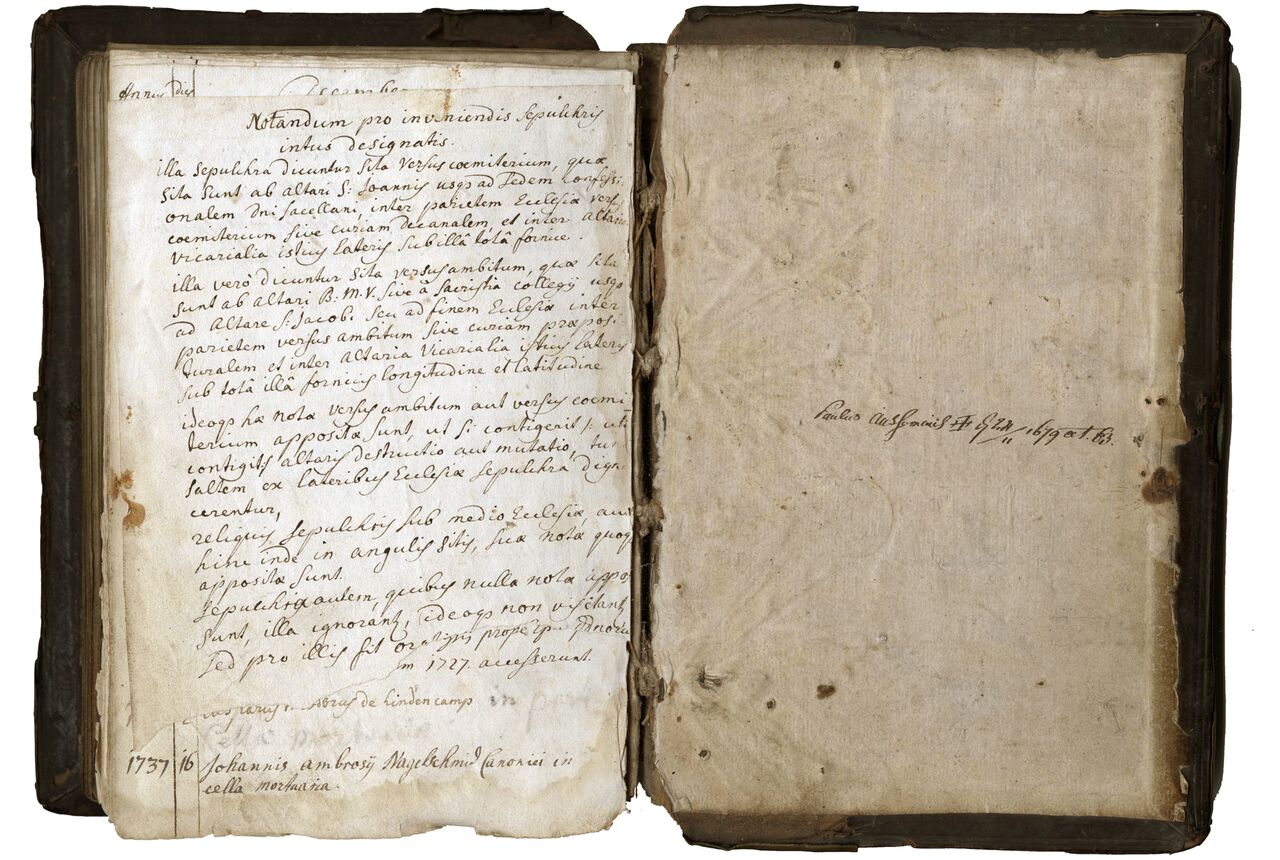 Annus dies Decembe
Notandum pro inveniendis Sepulchris
intus designatis.
illa Sepulchra dicuntur Sita versus coemiterium, quæ
Sita Sunt ab altari S: Joannis usqꝫ ad Sedem Confessi-
onalem Dni Sacellani, inter parietem Ecclesiæ vers,
coemiterium sive curiam decanalem, et inter altaria
Vicarialia istius lateris Sub illâ totâ fornice.
illa verò dicuntur Sita versus ambitum, quæ Sita
Sunt ab altari B. M. V. Sive â Sacristia collegij usqꝫ
ad Altare S: Jacobi Seu ad finem Ecclesiæ inter
parietem versus ambitum Sive curiam præposi-
turalem et inter Altaria Vicarialia istius lateris
Sub totâ illâ fornicis longitudine et latitudine
ideoqꝫ hæ notæ versus ambitum aut versus coemi-
terium appositæ Sunt, ut Si contigerit
contigit altaris destructio aut mutatio, tu
saltem ex lateribus Ecclesiæ Sepulchra dign
cerentur,
reliquis Sepulchris Sub medio Ecclesiæ, aut
hinc inde in angulis Sitis, suæ notæ quoqꝫ
appositæ Sunt.
Sepulchra autem, quibus nulla nota appos
Sunt, illa ignorant, ideoqꝫ non visitant
Sed pro illis fit prope
1727. accesserunt.
de hindencamp in
cella
1737 16 Johannis ambrosij Nagelschmid Canonici in
cella mortuaria.
Paulus 1679 æt. 63.